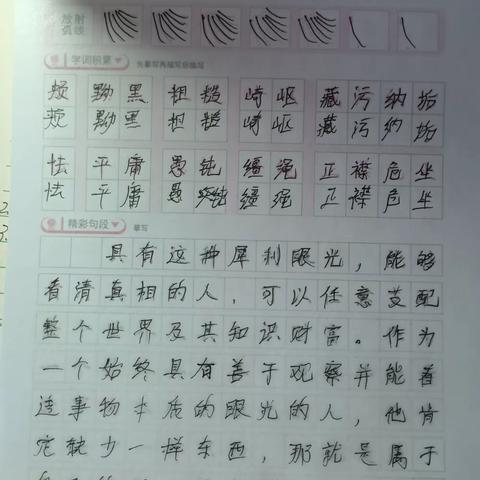 放射
弧线
学词积累
颊 黝黑 粗糙 崎岖 藏污纳垢
颊 黝黑 粗糙 崎岖 藏污纳垢
怯 平庸 愚钝 缰绳 正襟危坐
怯 平庸 愚钝 缰绳 正襟危坐
精彩句段 摹写
具有这种犀利眼光，能够
看清真相的人，可以任意支配
整个世界及其知识财富。作为
一个始终具有善于观察并能看
透事物本质的眼光的人，他肯
定缺少一样东西，那就是属于